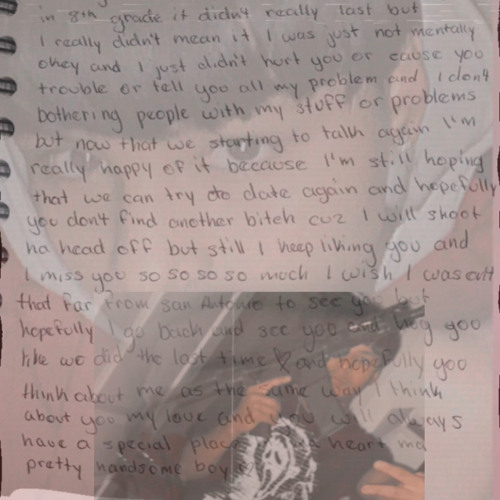 in 8th grade it didn't really last but
I really didn't mean it I was just not mentally
okey and I just didn't hurt you or cause you
trouble or tell you all my problem and I don't
bothering people with my stuff or problems
but now that we starting to talk again I'm
really happy of it because I'm still hoping
that we can try to date again and hopefully
you don't find another bitch cuz I will shoot
ha head off but still I keep liking you and
I miss you so so so so much I wish I was
that far from san Antonio to see you but
hopefully I go back and see you and hug you
like we did the last time and hopefully you
think about me as the same way I think
about you my love and you will always
have a special place heart ma
pretty handsome boy